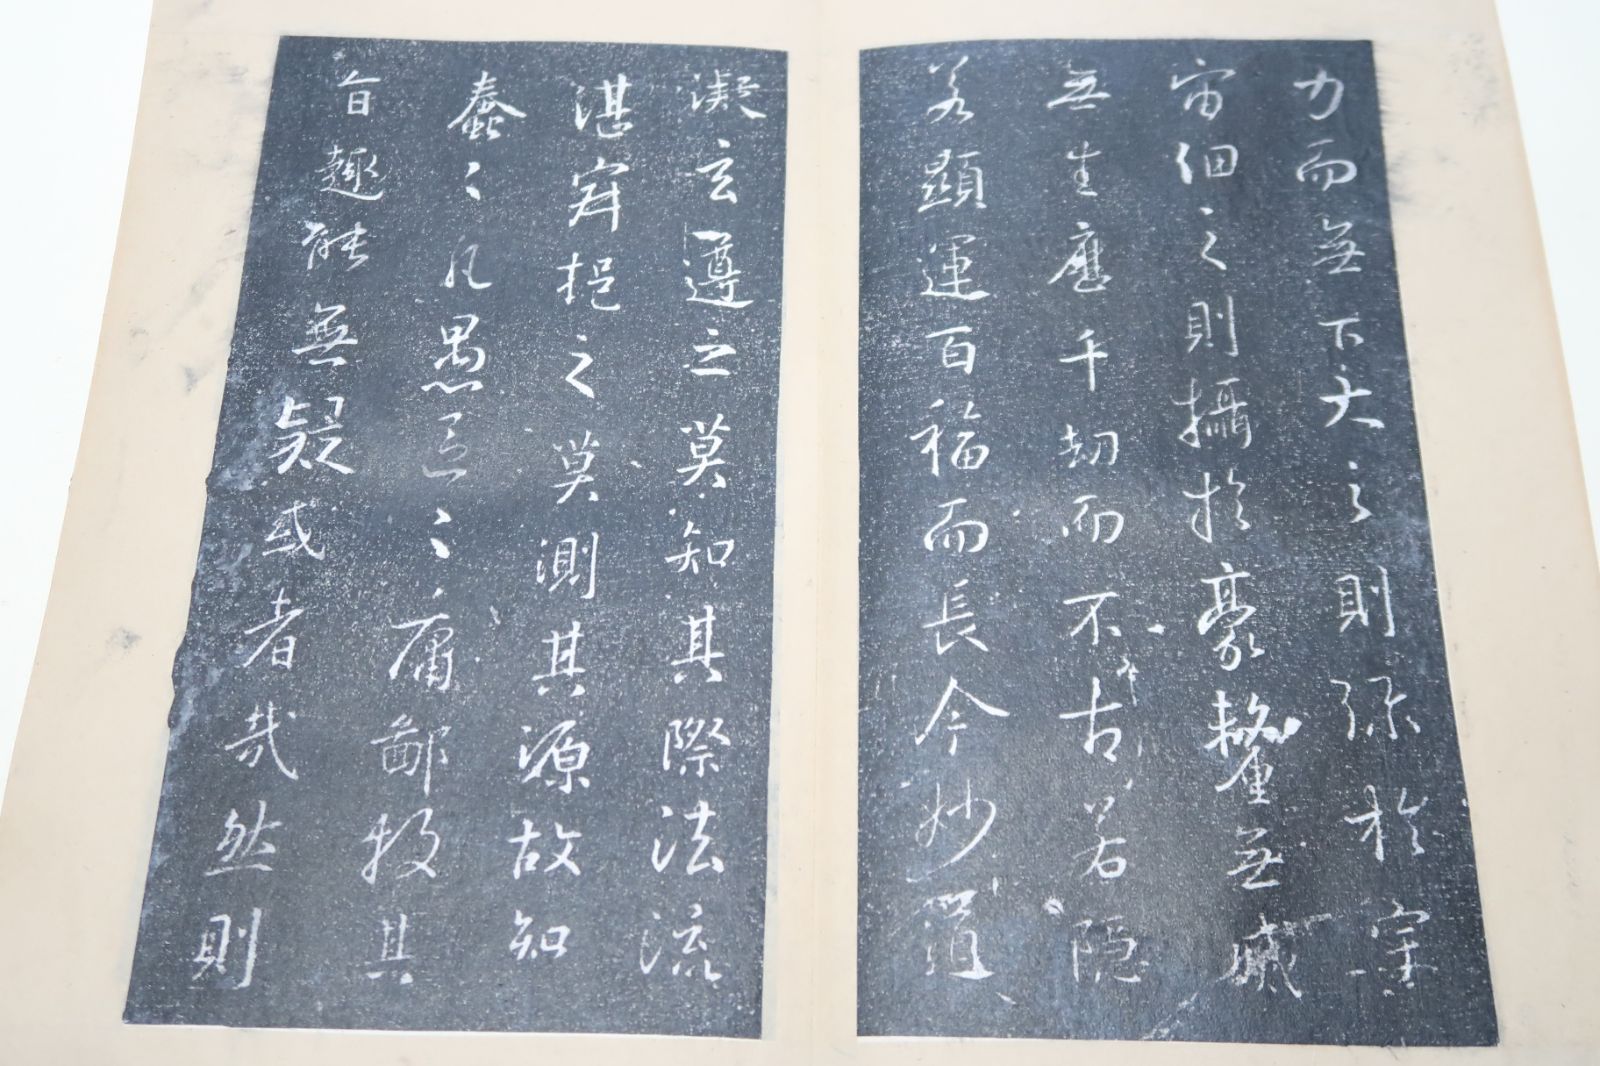 力而無下大之則弥於宇
宙細之則攝於豪釐無滅
無生歷千劫而不古若隱
若顯運百福而長今妙道
凝玄遵之莫知其際法流
湛寂挹之莫測其源故知
蠢〻凡愚區〻庸鄙投其
旨趣能無疑或者哉然則